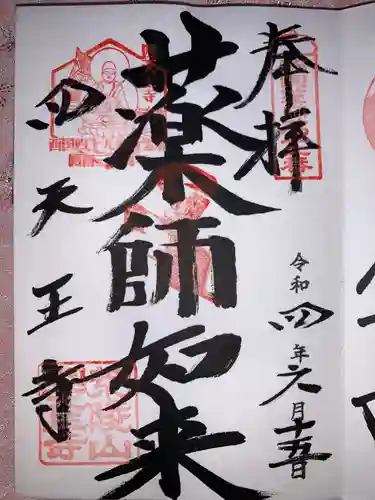 奉拝
令和四年六月十五日
薬師如来
四天王寺